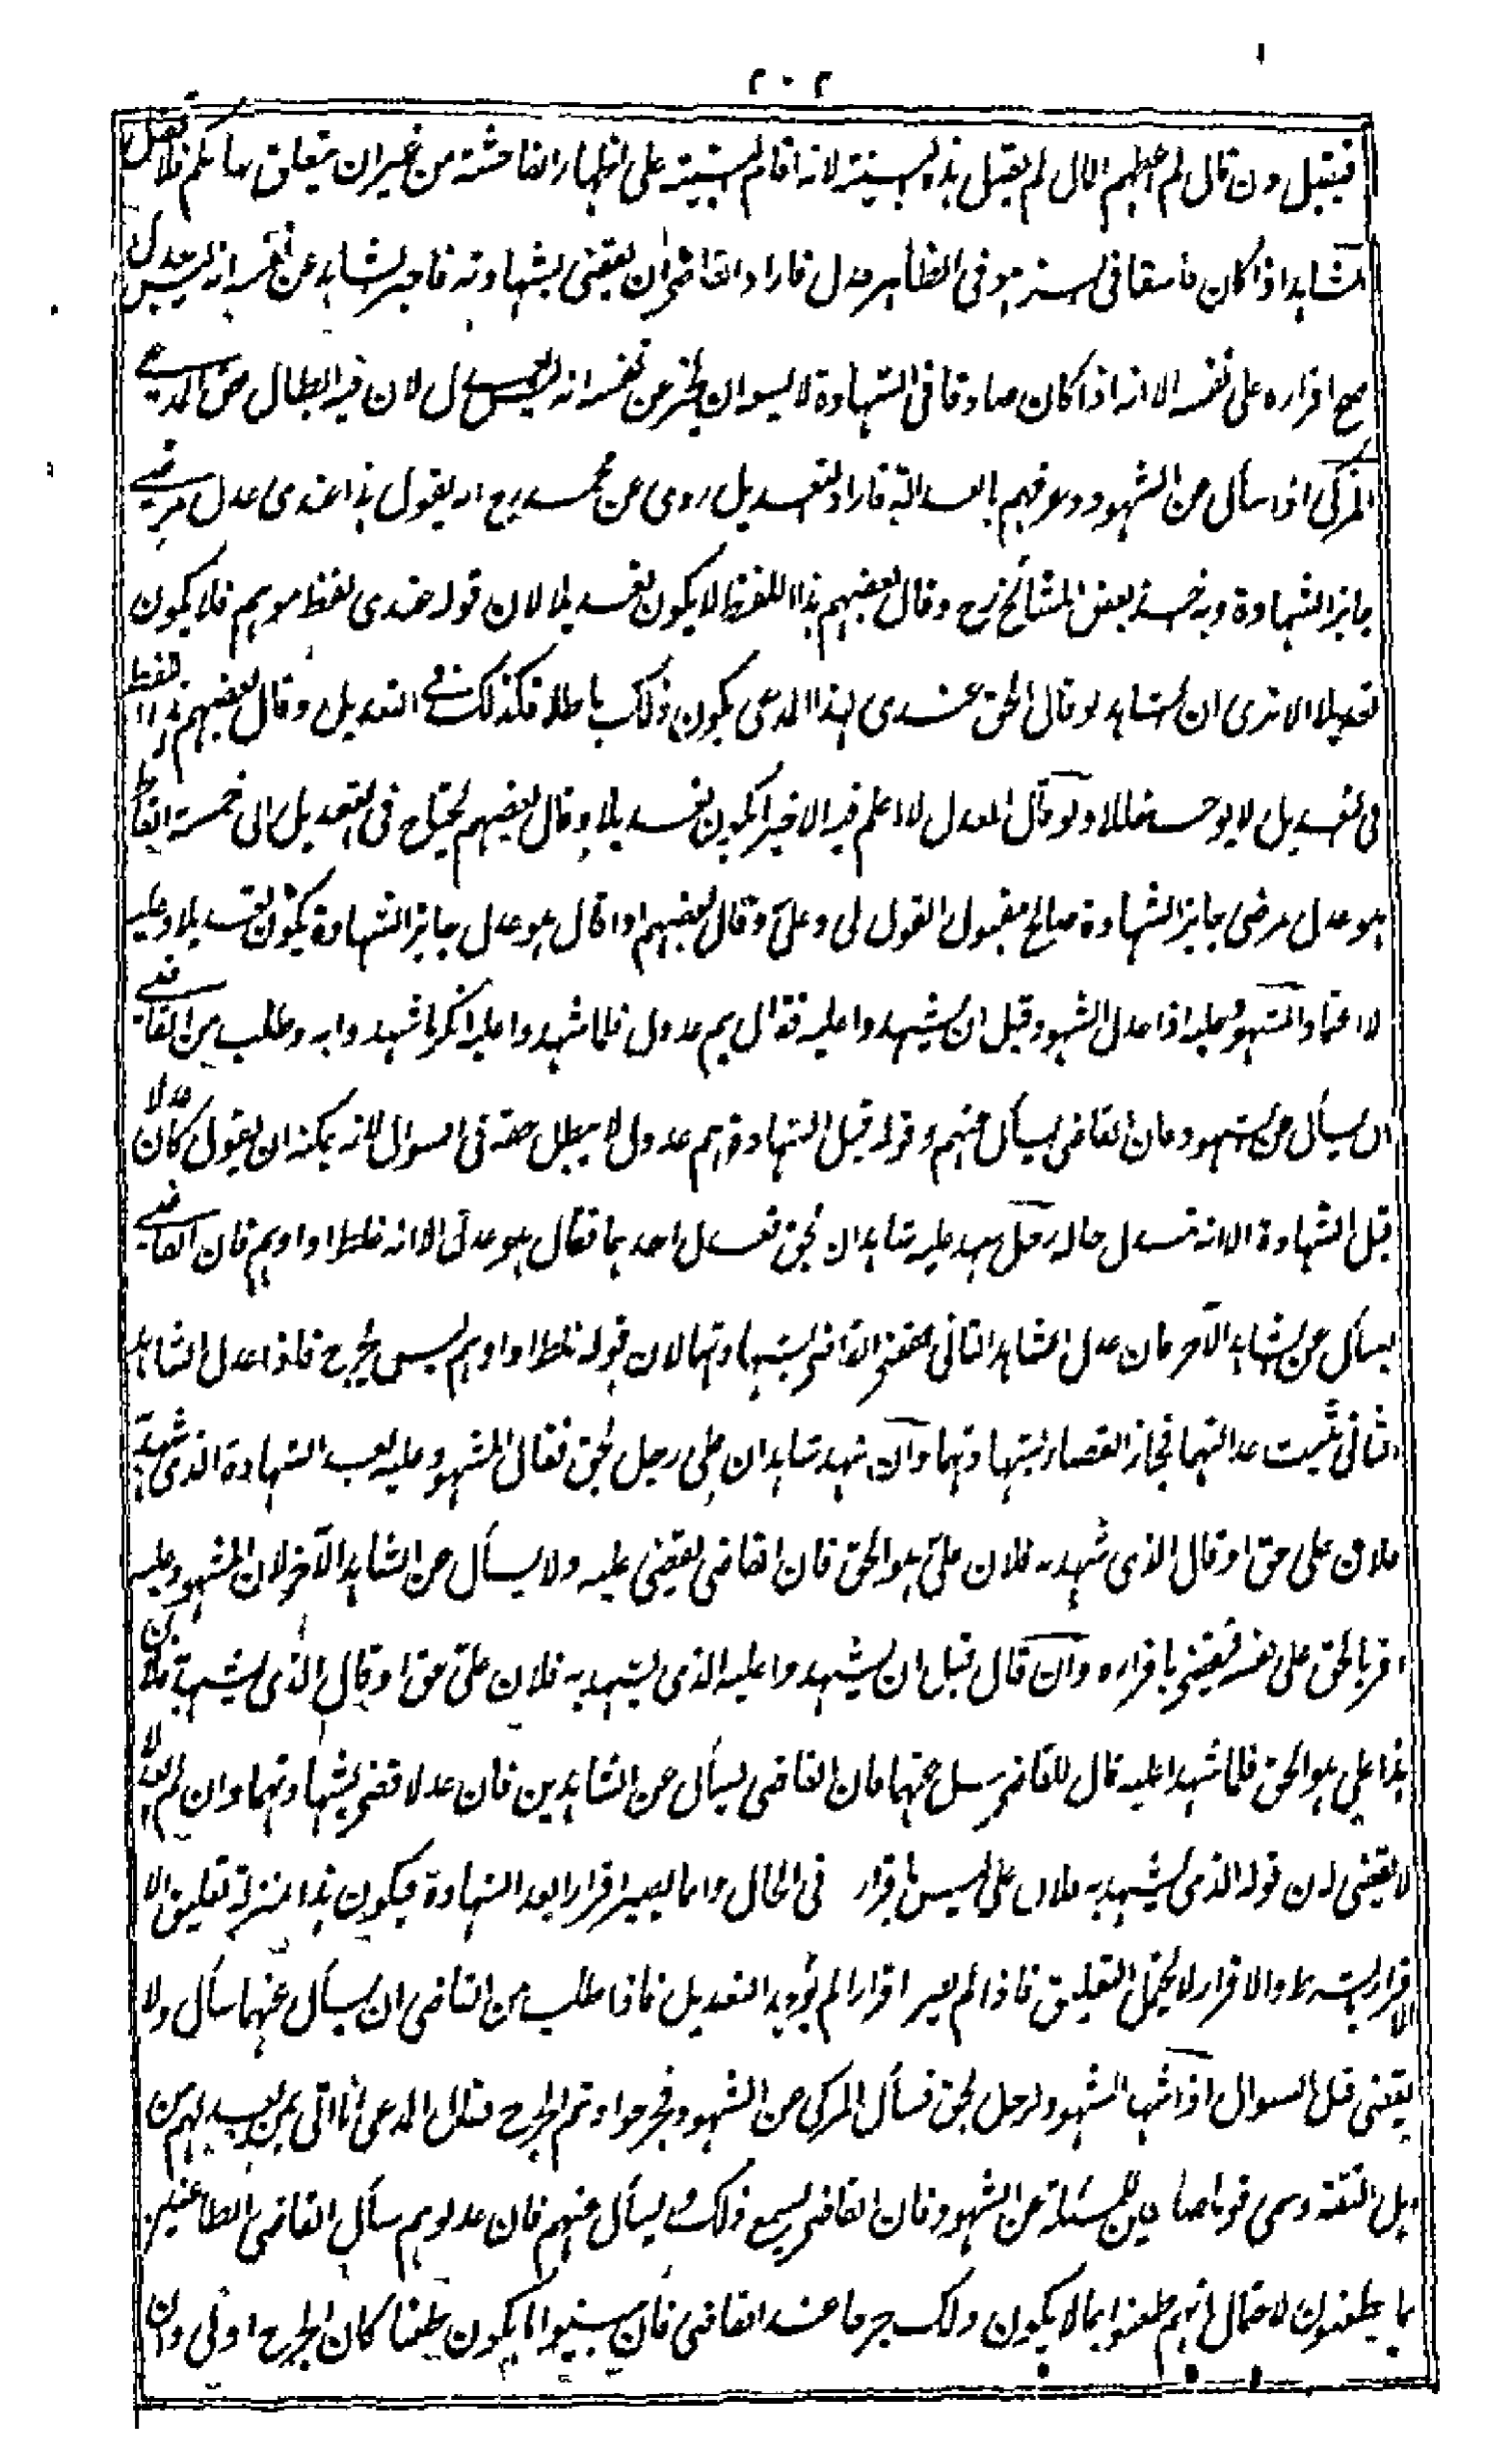 ٢٠٢
فيقبل وان قال لم اعطهم المال لم يقبل هذه البينة لانه اقام البينة على اظهار الفاحشة من غير ان يتعلق بها حكم فلا تقبل
الشاهد اذا كان فاسقا في السر وهو في الظاهر عدل فاراد القاضي ان يقضي بشهادته فاخبر الشاهد عن نفسه انه ليس بعدل
صح اقراره على نفسه الا انه اذا كان صادقا في الشهادة لا يسعه ان يخبر عن نفسه انه ليس بعدل لان فيه ابطال حق المدعي
المزكي اذا سأل عن الشهود وعرفهم بالعدالة فاراد التعديل روى عن محمد رح انه يقول هذا عندى عدل مرضي
جايز الشهادة وبه اخذ بعض المشائخ رح وقال بعضهم هذا اللفظ لا يكون تعديلا لان قوله عندى لفظ موهم فلا يكون
تعديلا الا ترى ان الشاهد لو قال الحق عندى لهذا المدعي يكون ذلك باطلا فكذلك في التعديل وقال بعضهم هذا اللفظ
في التعديل لا يوجب خللا ولو قال المعدل لا اعلم فيه الا خيرا يكون تعديلا وقال بعضهم يحتاج في التعديل الى خمسة الفاظ
هو عدل مرضي جايز الشهادة صالح مقبول القول لي وعليّ وقال بعضهم اذا قال هو عدل جايز الشهادة يكون تعديلا وعليه
الاعتماد المشهود عليه اذا عدل الشهود قبل ان يشهدوا عليه فقال هم عدول فلما شهدوا عليه انكر ما شهدوا به وطلب من القاضي
ان يسأل عن الشهود فان القاضي يسأل عنهم وقوله قبل الشهادة هم عدول لا يبطل حقه في السوال لانه يمكنه ان يقول كان عدلا
قبل الشهادة الا انه تبدل حاله رجل شهد عليه شاهدان بحق فعدل احدهما فقال هو عدل الا انه غلط او اوهم فان القاضي
يسأل عن الشاهد الآخر فان عدل الشاهد الثاني يقضي القاضي بشهادتهما لان قوله غلط او اوهم ليس بجرح فاذا عدل الشاهد
الثاني ثبتت عدالتهما فجاز القضاء بشهادتهما وان شهد شاهدان على رجل بحق فقال المشهود عليه بعد الشهادة الذي شهد به
فلان على حق او قال الذي شهد به فلان عليّ هو الحق فان القاضي يقضي عليه ولا يسأل عن الشاهد الآخر لان المشهود عليه
اقر بالحق على نفسه فيقضي باقراره وان قال قبل ان يشهدوا عليه الذي يشهد به فلان عليّ حق او قال الذي يشهد به فلان
هذا علي هو الحق فلما شهدا عليه قال للقاضي سل عنهما فان القاضي يسأل عن الشاهدين فان عدلا قضى بشهادتهما وان لم يعدلا
لا يقضي لان قوله الذي يشهد به فلان علي ليس باقرار في الحال وانما يصير اقرارا بعد الشهادة فيكون هذا بمنزلة تعليق الا
الاقرار بالشرط والاقرار لا يحتمل التعليق فاذا لم يصر اقرارا لم يوجد التعديل فاذا طلب من القاضي ان يسأل عنهما سأل ولا
يقضي قبل السوال اذا شهد الشهود لرجل بحق فسأل المزكي عن الشهود فجرحوا وتم الجرح فقال المدعي انا اتي بمن يعدلهم من
اهل الثقة وسمى قوما صالحين للمسئلة عن الشهود فان القاضي يسمع ذلك ويسأل عنهم فان عدلوهم سأل القاضي الطاعنين
بما يطعنون لاحتمال انهم طعنوا بما لا يكون ذلك جرحا عند القاضي فان بينوا ما يكون طعنا كان الجرح اولى وان